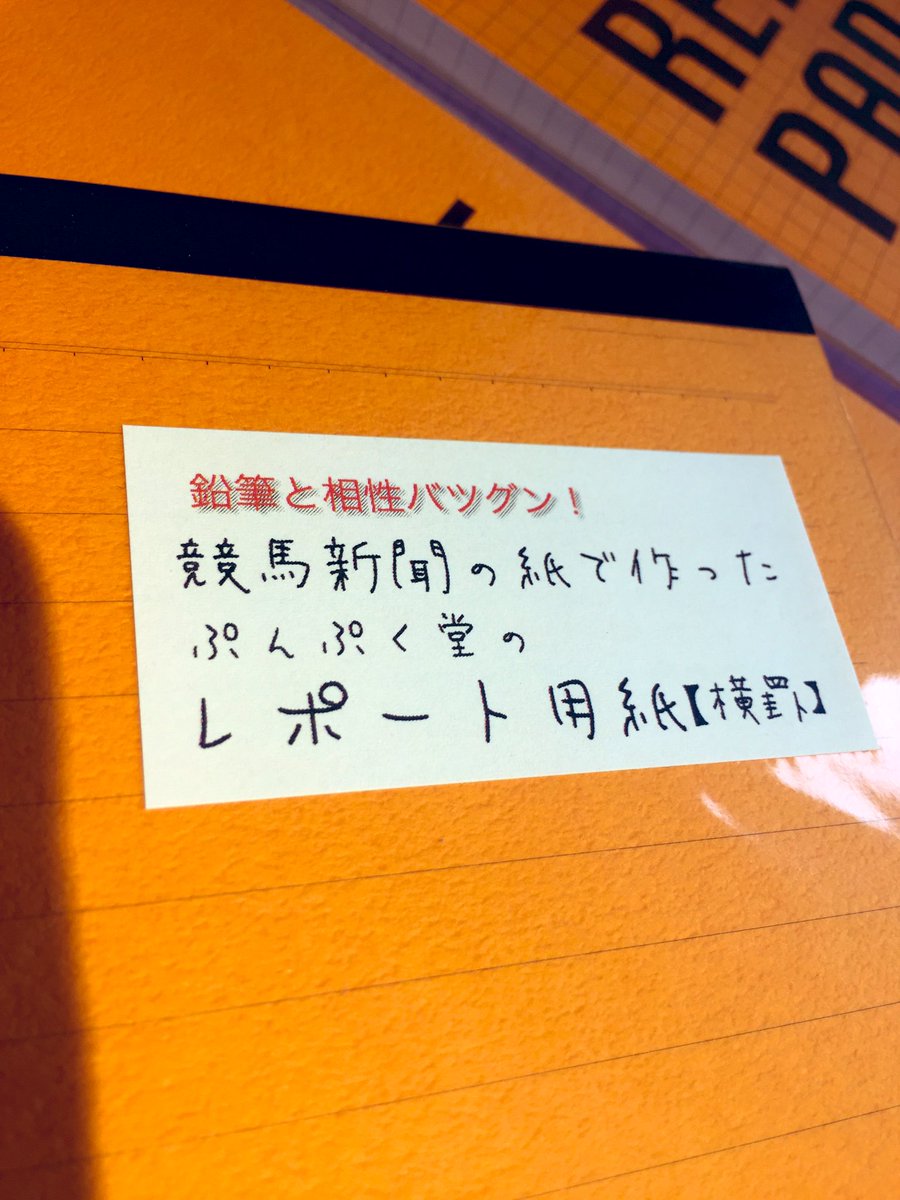 鉛筆と相性バツグン！
競馬新聞の紙で作った
ぷんぷく堂の
レポート用紙【横罫】
PAD